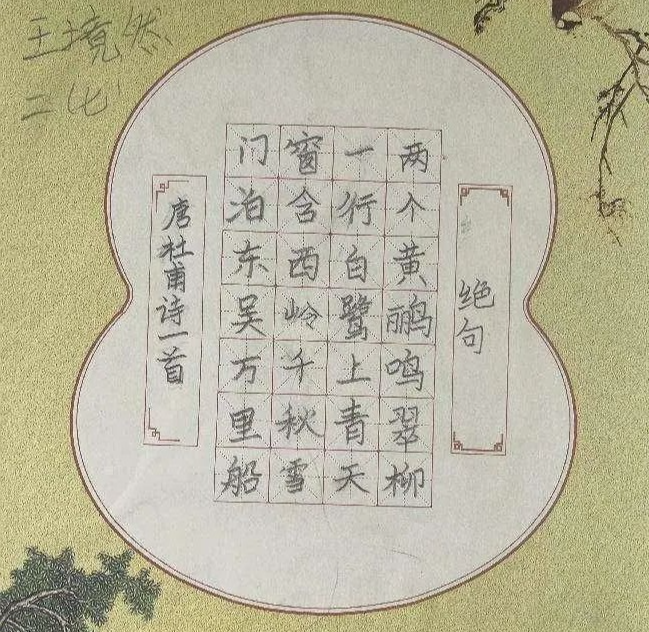 王境然
二(七)
绝句
两个黄鹂鸣翠柳
一行白鹭上青天
窗含西岭千秋雪
门泊东吴万里船
唐杜甫诗一首